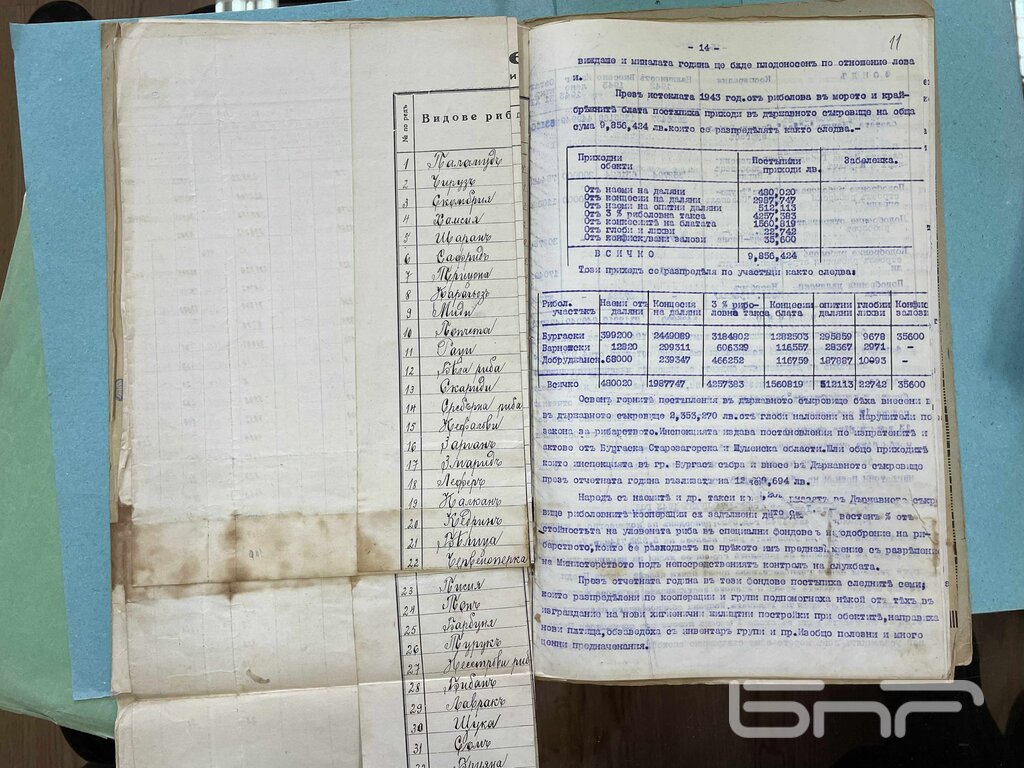 № по редъ
Видове риб
1 Паламудъ
2 Чирузъ
3 Скумбрия
4 Хамсия
5 Шаранъ
6 Сафридъ
7 Терциона
8 Карагьозъ
9 Миди
10 Попчета
11 Раци
12 Бѣла риба
13 Скариди
14 Сребърна риба
15 Кефалови
16 Зарганъ
17 Змаридъ
18 Леферъ
19 Калканъ
20 Кедринъ
21
22 Червеноперка
23 Писия
24
25 Барбуня
26 Турукъ
27 Есетрови риб
28 Бибанъ
29 Лавракъ
30 Щука
31 Сомъ
- 14 -
11
виждаше и миналата година ще бѫде плодоносен по отношение лова
и.
Презъ истеклата 1943 год. отъ риболова въ морето и край-
брѣжнитѣ блата постѫпиха приходи въ държавното съкровище на обща
сума 9,856,424 лв. които се разпредѣлятъ както следва.-
Приходни обекти Постѫпили приходи лв. Забележка.
Отъ наеми на даляни 480,020
Отъ концесии на даляни 2987,747
Отъ наеми на опитни даляни 512,113
Отъ 3 % риболовна такса 4257,383
Отъ концесиитѣ на блатата 1560,819
Отъ глоби и лихви 22,742
Отъ конфискувани валови 35,600
ВСИЧКО 9,856,424
Този приходъ се разпредѣля по участъци както следва:
Рибол. участъкъ Наеми отъ даляни Концесия на даляни 3 % рибо- ловна такса Концесии блата опитни даляни глоби и лихви Конфис валови
Бургаски 399200 2449089 3184802 1282503 295859 9678 35600
Варненски 12820 299311 606329 116557 28367 2971 -
Добруджанск. 68000 239347 466252 116759 187887 10093 -
Всичко 480020 1987747 4257383 1560819 512113 22742 35600
Освенъ горнитѣ постѫпления въ държавното съкровище бѣха внесени и
въ държавното съкровище 2,353,270 лв. отъ глоби наложени на нарушители по
закона за рибарството. Инспекцията издава постановления по изпратенитѣ и
актове отъ Бургаска Старозагорска и Шуменска области. Или общо приходитѣ
които инспекцията въ гр. Бургасъ събра и внесе въ Държавното съкровище
презъ отчетната година възлизатъ на 12 ,694 лв.
Наредъ съ наемитѣ и др. такси въ Държавното съкр
вище риболовнитѣ кооперации сѫ задължени вестенъ % отъ
стойностьта на уловената риба въ специални фондове за одобрение на ри-
барството, които се разходватъ по прѣкото имъ предназ. мение съ разрѣшение
на Министерството подъ непосредствениятъ контролъ на службата.
Презъ отчетната година въ тези фондове постѫпиха следнитѣ суми;
които разпредѣлени по кооперации и групи подпомогнаха нѣкой отъ тѣхъ въ
изграждание на нови хигиенични жилищни постройки при обектитѣ, направиха
нови платища, обзаведоха съ инвентаръ групи и пр. Изобщо полезни и много
ценни предначенания.
бнр